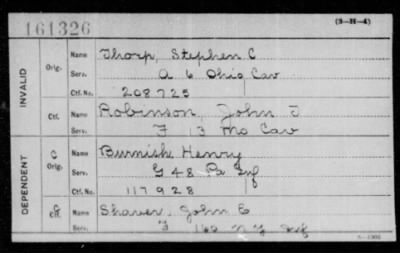 161326
(3-H-4)
INVALID
Orig.
Name Thorp, Stephen C
Serv. A 6 Ohio Cav
Ctf. No. 208725
Ctf.
Name Robinson, John J
Serv. F 13 Mo Cav
DEPENDENT
C Orig.
Name Burnish Henry
Serv. G 48 Pa Inf
Ctf. No. 117928
C Ctf.
Name Shaver, John E
Serv. F N Y Inf